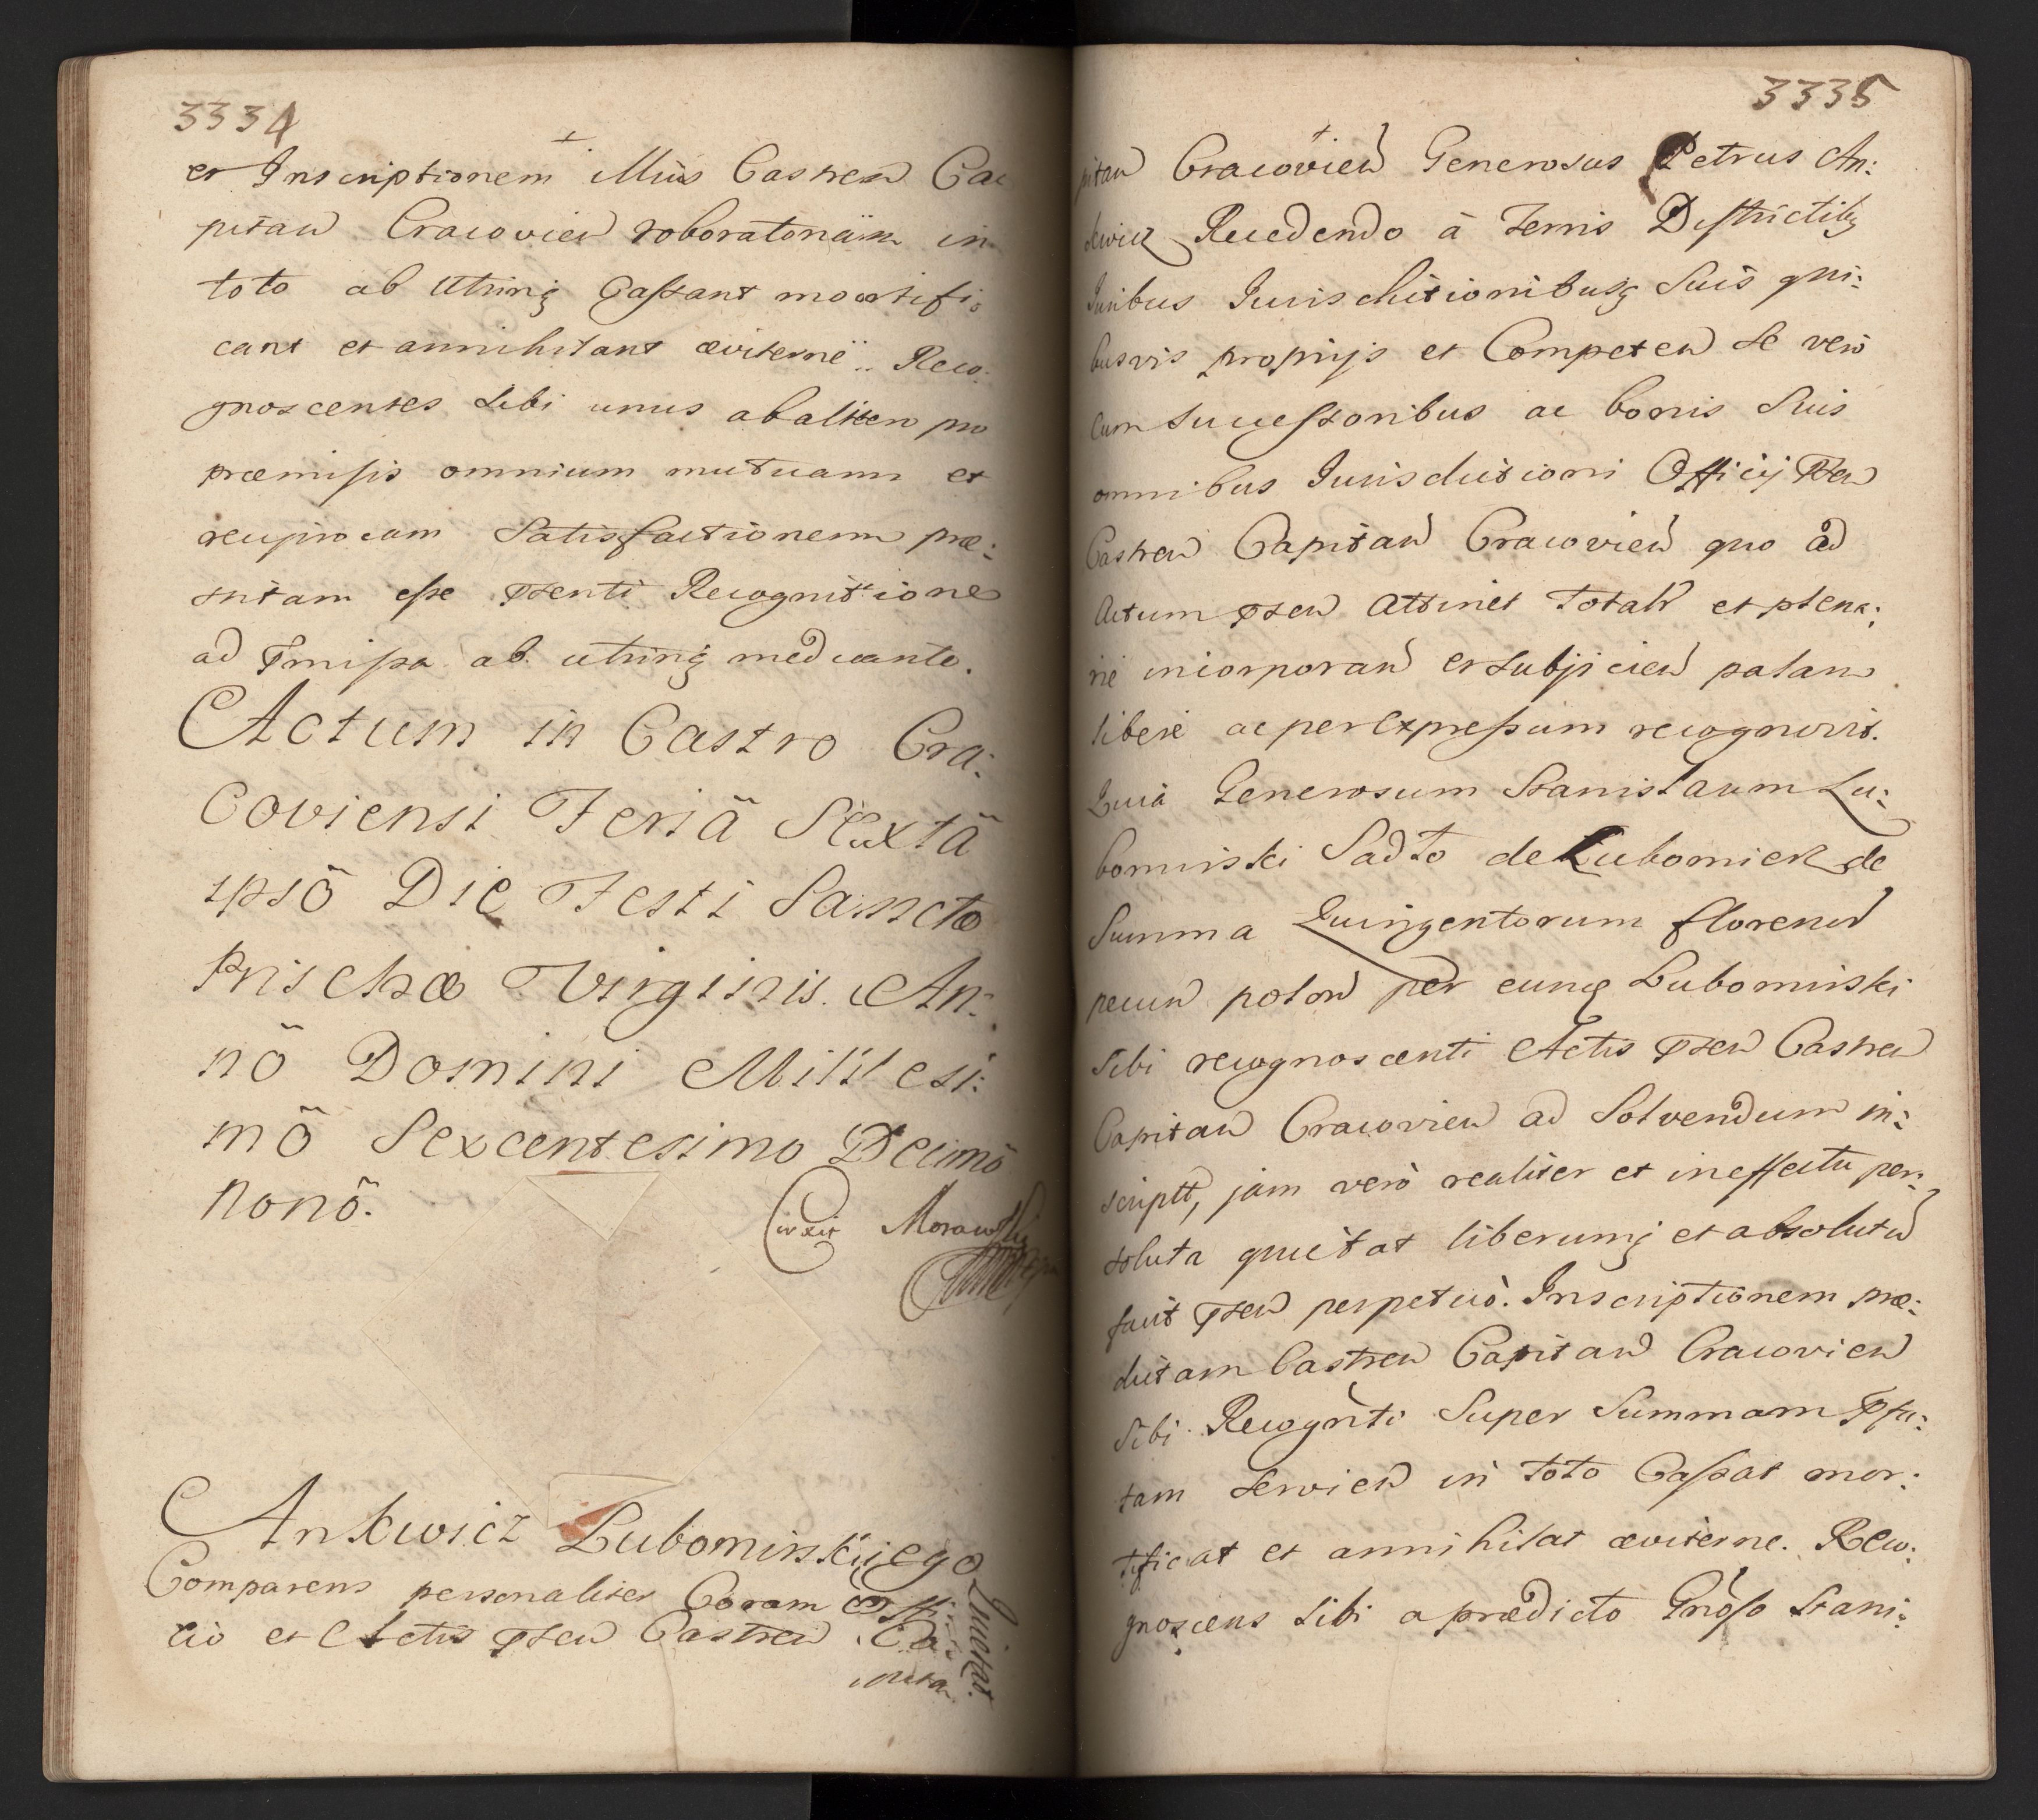 3334
et Inscriptionem illius Castren Ca
pitan Cracovien roboratoriam in
toto ab utrinq Cassant mortifi:
cant et annihilant æviterne. Reco:
gnoscentes sibi unus ab altero pro
præmissis omnium mutuam et
reciprocam Satisfactionem præ:
stitam esse pnti Recognitione
ad Pmissa ab utrinq mediante.
Actum in Castro Cra:
coviensi Feriâ Sextâ
ipsô Die Festi Sanctæ
Prischæ Virginis. An:
nô Domini Millesi:
mô Sexcentesimo Decimô
nonô.
Morawski
Ankwicz Lubomirskiego
Comparens personaliter Coram Offi:
cio et Actis psen Castren Ca
pita
Quietat.
3335
pitan Cracovien Generosus Petrus An:
kwicz Recedendo â Terris Districtibq
Juribus Jurisdictionibusq Suis qui:
busvis proprijs et Competen se verò
cum Successoribus ac bonis Suis
omnibus Jurisdictioni Officij Psen
Castren Capitan Cracovien quo ad
Actum psen attinet totalr et plena:
rie incorporan et subjicien palam
libere ac per Expressum recognovit.
Quia Generosum Stanislaum Lu:
bomirski Sadło de Lubomierz de
Summa Quingentorum florenor
pecun polon per eunq Lubomirski
Sibi recognoscenti Actis psen Castren
Capitan Cracovien ad Solvendum in:
scriptt, jam verò realiter et in effectu per:
soluta quietat liberumq et absolutum
facit psen perpetuò. Inscriptionem præ:
dictam Castren Capitan Cracovien
Sibi Recognti Super Summam Pfa:
tam Servien in toto Cassat mor:
tificat et annihilat æviterne. Reco:
gnoscens sibi a prædicto Gnoso Stani: